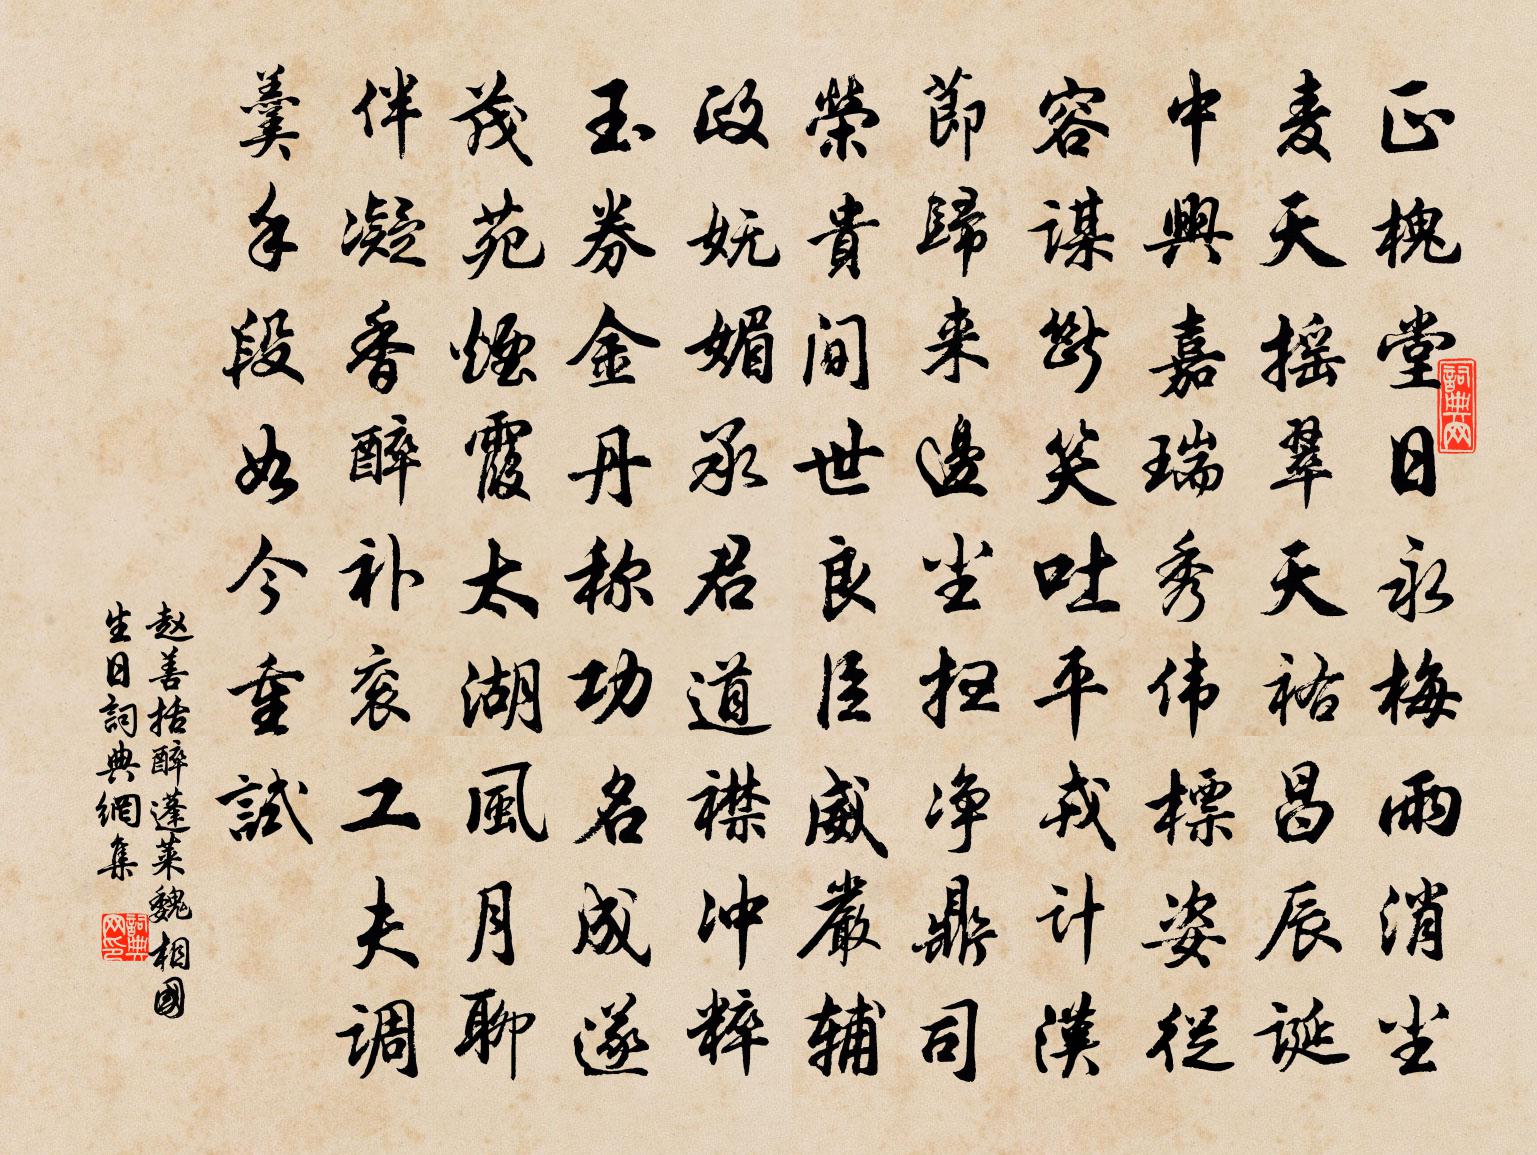 正槐堂日永梅雨消尘
麦天摇翠天祐昌辰诞
中興嘉瑞秀伟標姿従
容谋断笑吐平戎计漢
節歸来邊尘扫净鼎司
榮貴间世良臣威嚴辅
政妩媚承君道襟冲粹
玉券金丹称功名成遂
茂苑煙霞太湖風月聊
伴凝香醉补衮工夫调
羹手段如今重試
赵善括醉蓬莱魏相國
生日詞典網集
詞典网
詞典网印